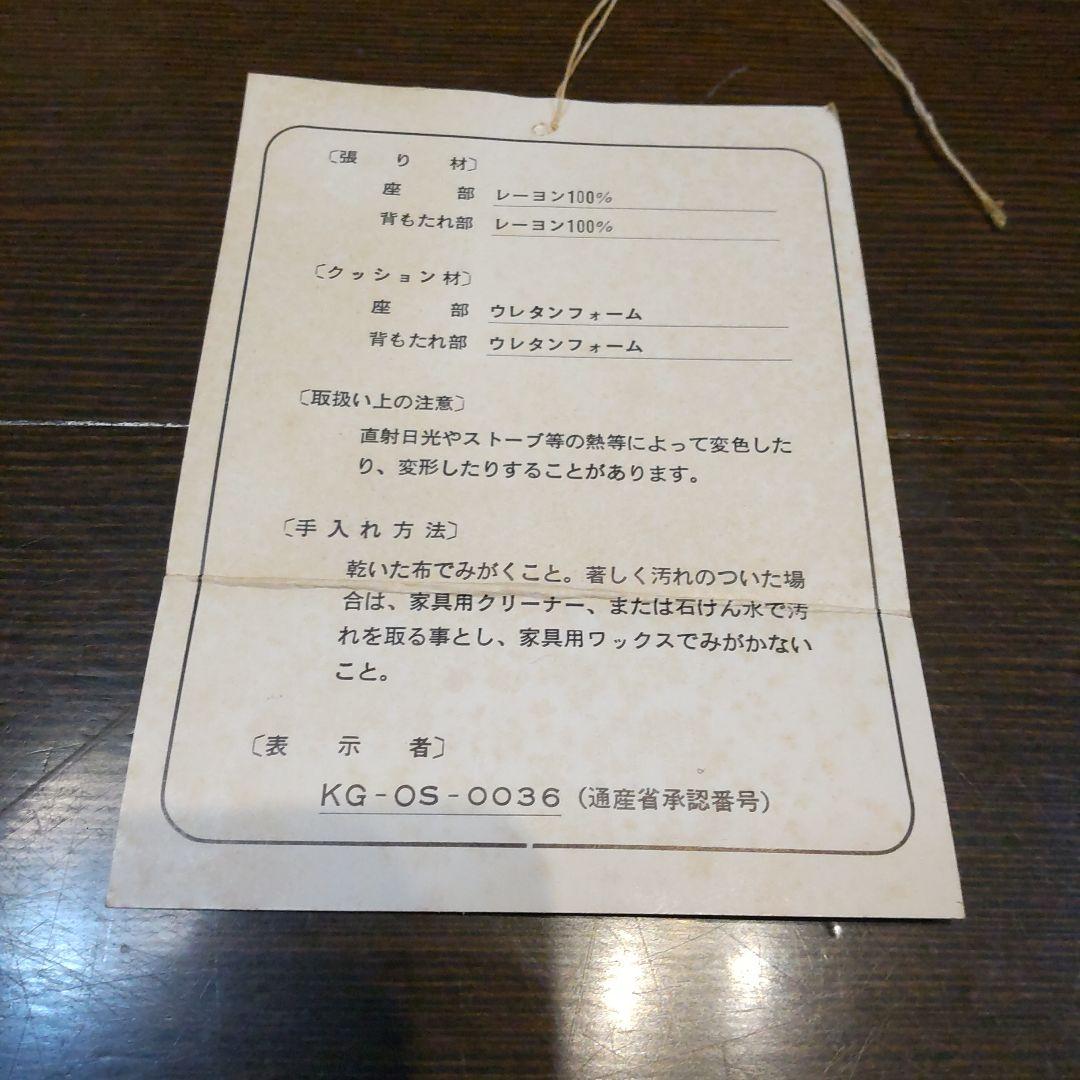 〔張り材〕
座部 レーヨン100%
背もたれ部 レーヨン100%
〔クッション材〕
座部 ウレタンフォーム
背もたれ部 ウレタンフォーム
〔取扱い上の注意〕
直射日光やストーブ等の熱等によって変色した
り、変形したりすることがあります。
〔手入れ方法〕
乾いた布でみがくこと。著しく汚れのついた場
合は、家具用クリーナー、または石けん水で汚
れを取る事とし、家具用ワックスでみがかない
こと。
〔表示者〕
KG-OS-0036 (通産省承認番号)